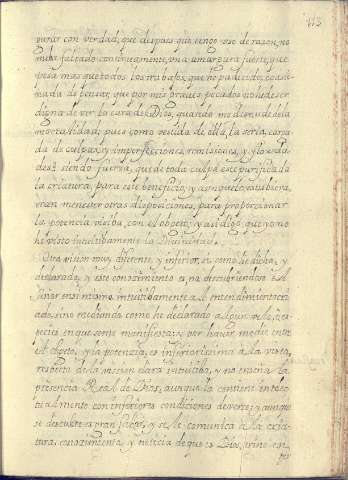 113
gurar con verdad, que despues que tengo uso de razon, no
me ha faltado continuamente, vna amargura fuerte, que
pesa mas que todos los trabajos, que he padecido, ocasio
nada de temer, que por mis graues pecados no he de ser
digna de ver la cara de Dios, quando me desnude de la
mortalidad; pues como vestida de ella, la seria, carga
da de culpas, y imperfecciones, remisiones, y floxeda
des? siendo fuerza, que de toda culpa este purificada
la criatura, para este beneficio; y aunque lo estubiera,
eran menester otras disposiciones, para proporcionar
la potencia visiba, con el objeto; y asi digo, que yo no
he visto intuitibamente la Diuinidad.
Otra vision muy diferente, y inferior, es, como he dicho, y
declarado, y este conocimiento es, no descubriendose el
Señor en si mismo intuitibamente al entendimiento cri
ado, sino mediando como he declarado algun velo, o es
pecie en que se me manifiesta; y por hauer medio entre
el objeto, y la potencia, es inferiorissima a la vista,
respeto de la vision clara intuitiba, y no enseña la
presencia Real de Dios, aunque la contiene intelec
tualmente con inferiores condiciones de ver; y aunque
se descubre a gran luz, y se le comunica a la cria
tura, conocimiento, y noticia de que es Dios, trino en
per